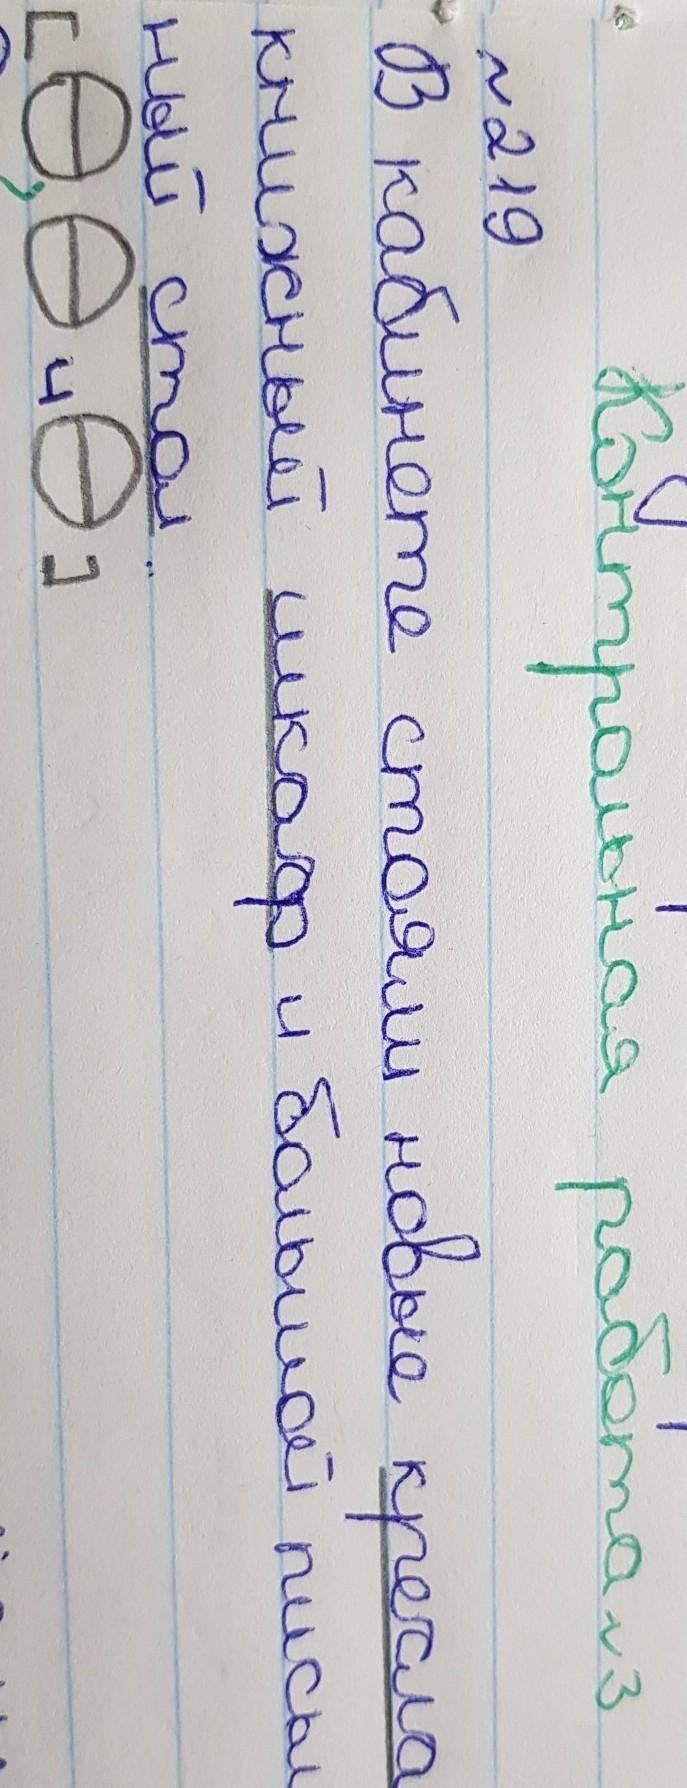 Контрольная работа ~3
~219
В кабинете стояли новые кресла
книжный шкаф и большой письм
ный стол.
[⊖, ⊖ и ⊖]